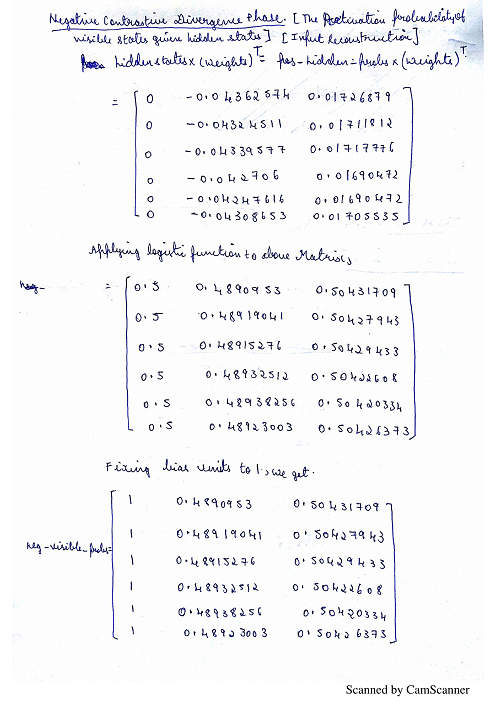 Negative Contrastive Divergence Phase. [The Activation probability of
visible states given hidden states] [Input Reconstruction]
hidden states x (weights)^T = pos-hidden-probs x (weights)^T.
= [ 0 -0.04362574 0.01726879
0 -0.04324511 0.01711812
0 -0.04339577 0.01717776
0 -0.042706 0.01690472
0 -0.04247616 0.01690472
0 -0.04308653 0.01705535 ]
Applying logistic function to above Matrix,
neg- = [ 0.5 0.4890953 0.50431709
0.5 0.48919041 0.50427943
0.5 0.48915276 0.50429433
0.5 0.48932512 0.50422608
0.5 0.48938256 0.50420334
0.5 0.48923003 0.50426373 ]
Fixing bias units to 1, we get.
[ 1 0.4890953 0.50431709
1 0.48919041 0.50427943
neg-visible-probs= 1 0.48915276 0.50429433
1 0.48932512 0.50422608
1 0.48938256 0.50420334
1 0.48923003 0.50426373 ]
Scanned by CamScanner